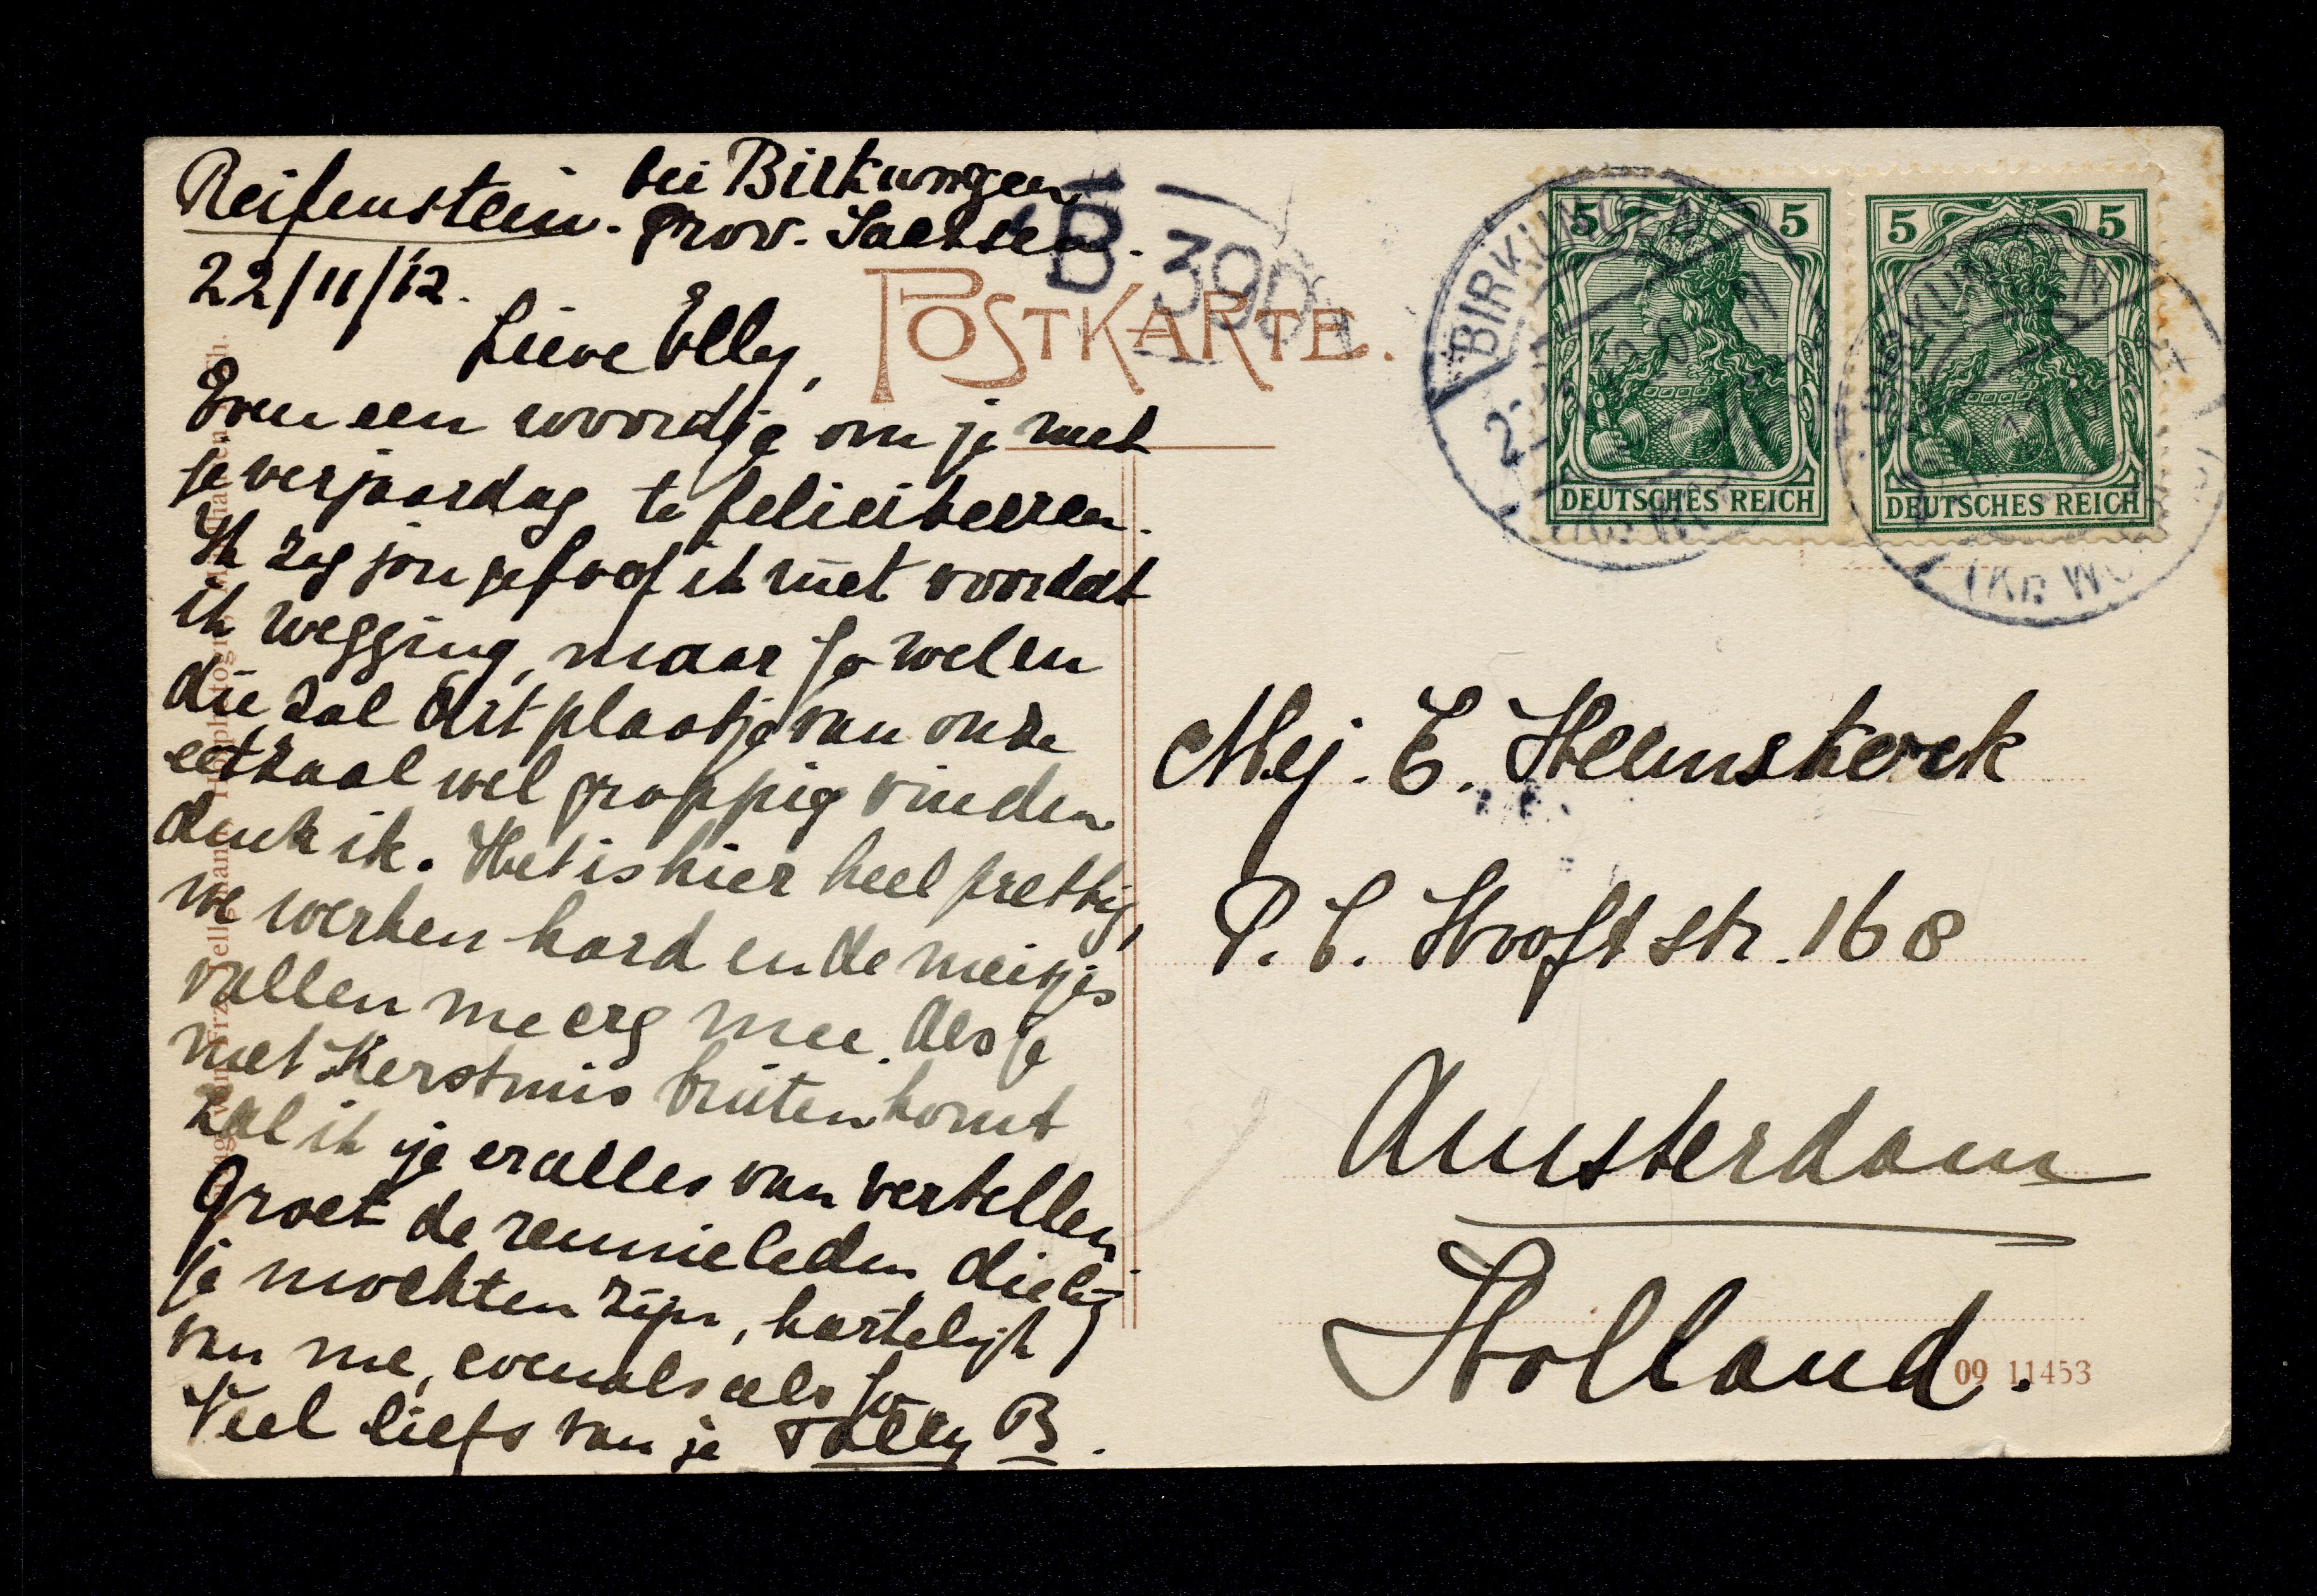 Reifenstein. bei Birkungen
Prov. Sachsen.
22/11/'12.
Lieve Elly,
Even een woordje om je met
je verjaardag te feliciteeren.
Ik zag jou geloof ik niet voordat
ik wegging, maar Jo wel en
die zal dit plaatje van onze
eetzaal wel grappig vinden
denk ik. Het is hier heel prettig,
we werken hard en de meisjes
vallen me erg mee. Als je
met Kerstmis buiten komt
zal ik je er alles van vertellen
Groet de reunieleden die bij
je mochten zijn, hartelijk
van me, evenals als Jo
Veel liefs van je B.
POSTKARTE.
B 390
5 5
DEUTSCHES REICH
5 5
DEUTSCHES REICH
BIRKUNGEN
BIRKUNGEN
Mej. E. Heemskerk
P. C. Hooft str. 168
Amsterdam
Holland.
09 11453